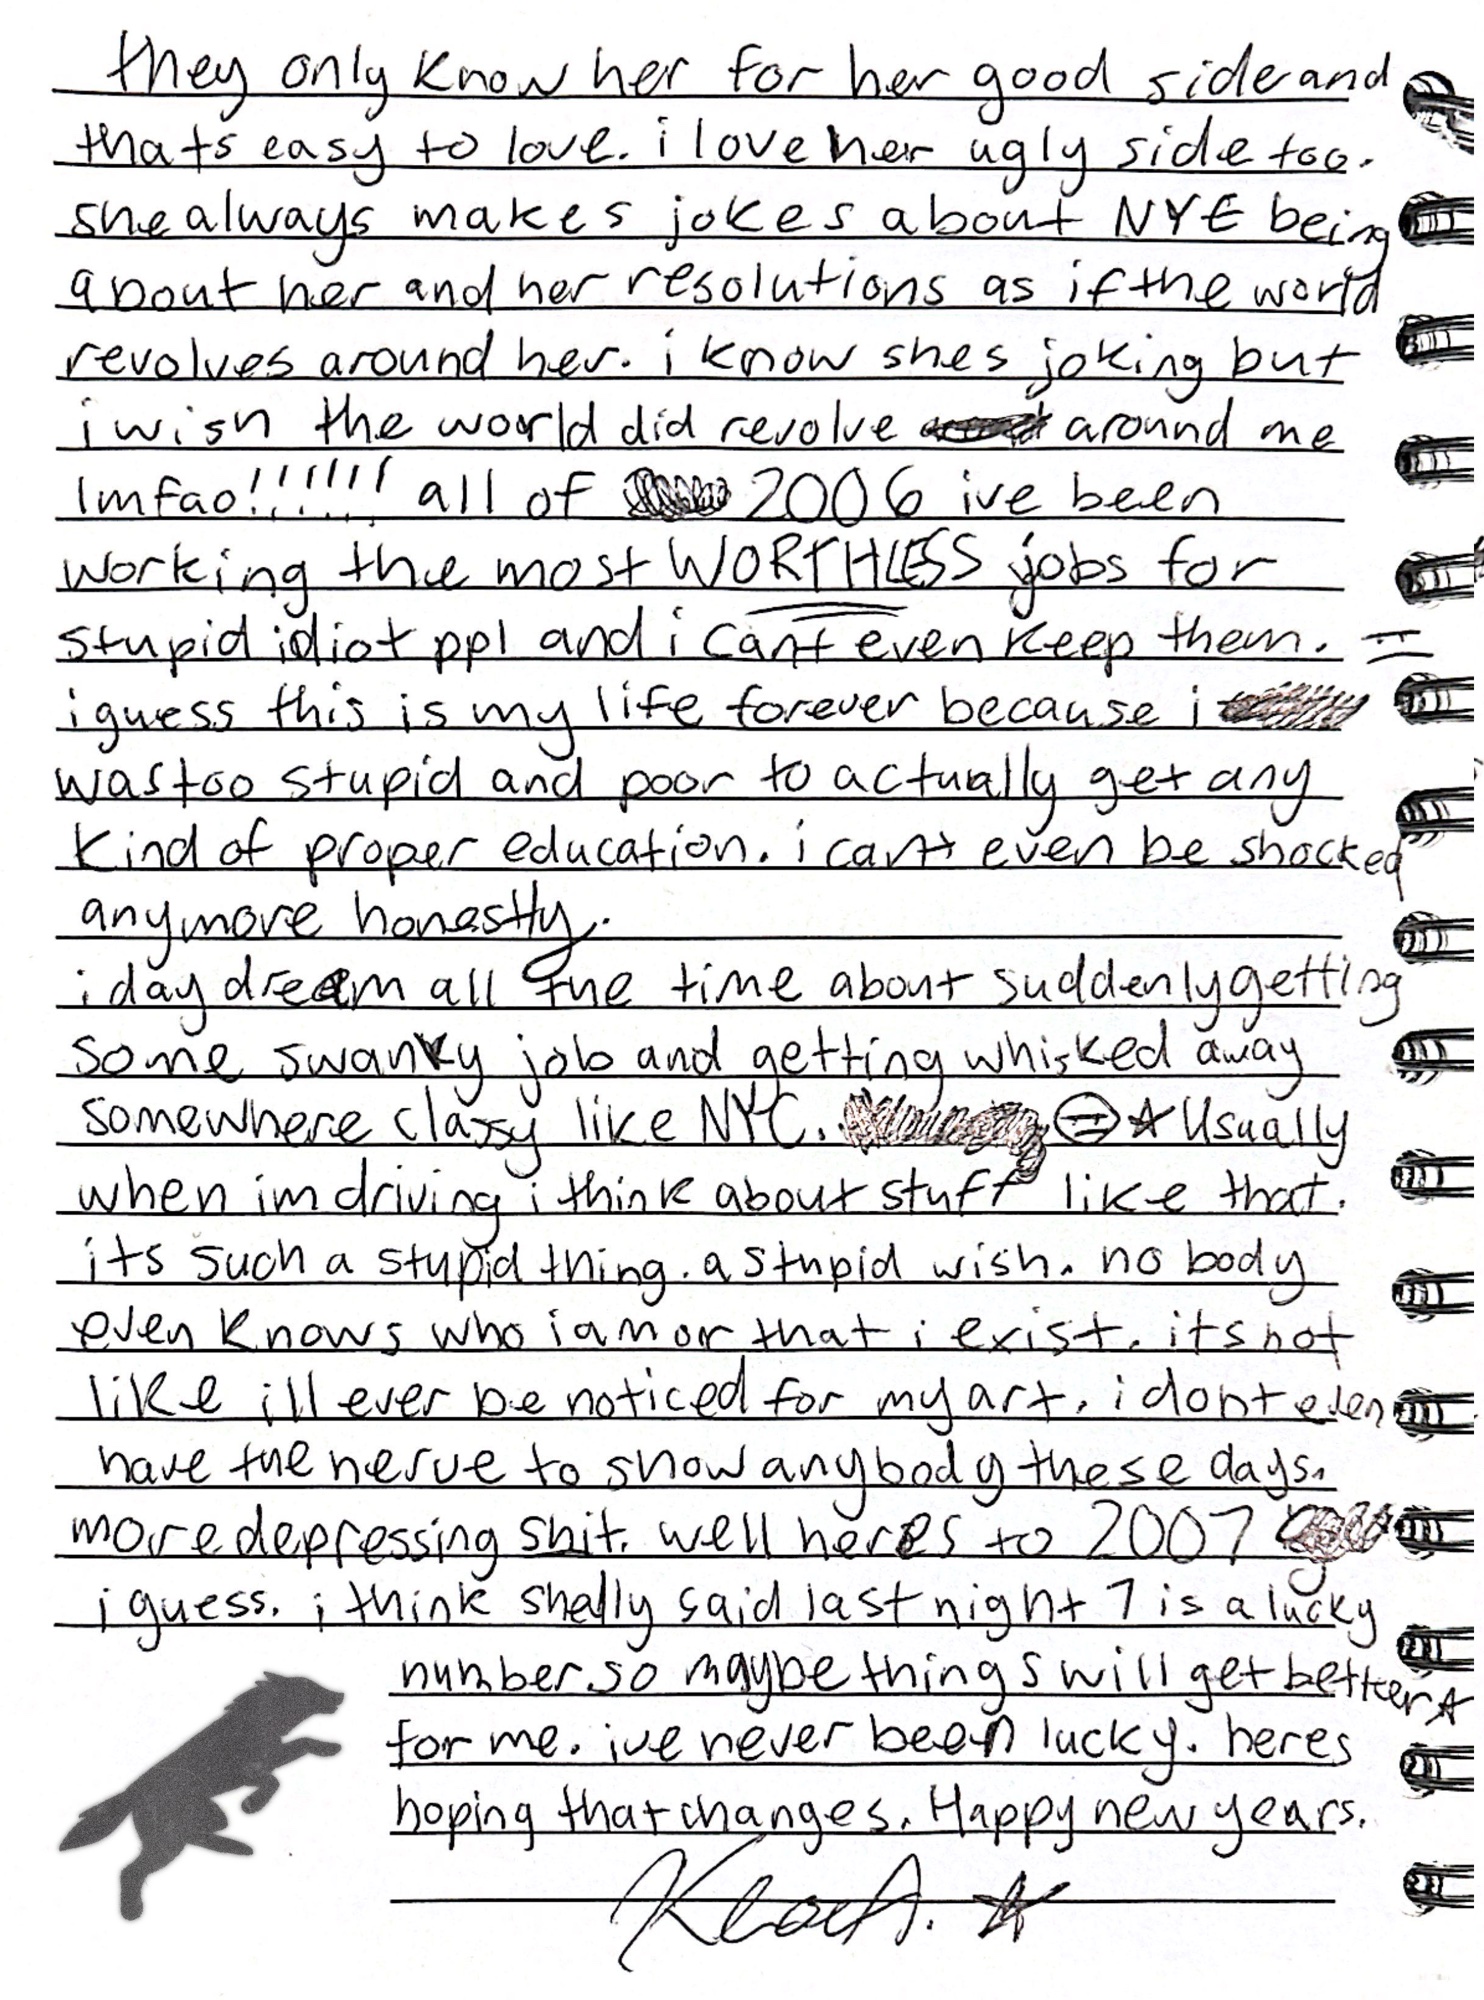 they only know her for her good side and
thats easy to love. i love her ugly side too.
she always makes jokes about NYE being
about her and her resolutions as if the world
revolves around her. i know shes joking but
i wish the world did revolve around me
lmfao!!!!!!! all of 2006 ive been
working the most WORTHLESS jobs for
stupid idiot ppl and i cant even keep them.
i guess this is my life forever because i
was too stupid and poor to actually get any
kind of proper education. i cant even be shocked
anymore honestly.
i daydream all the time about suddenly getting
some swanky job and getting whisked away
somewhere classy like NYC. ☆ Usually
when im driving i think about stuff like that.
its such a stupid thing. a stupid wish. no body
even knows who i am or that i exist. its not
like ill ever be noticed for my art. i dont even
have the nerve to show anybody these days.
more depressing shit. well heres to 2007
i guess. i think shelly said last night 7 is a lucky
number. so maybe things will get better ☆
for me. ive never been lucky. heres
hoping that changes. Happy new years.
A. ☆